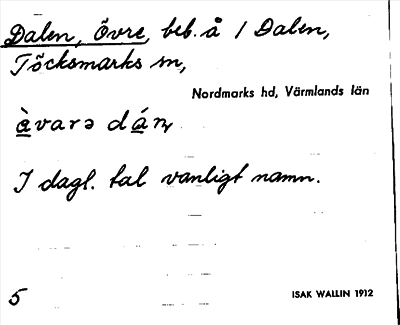 Dalen, Övre, beb. å 1 Dalen,
Töcksmarks sn,
Nordmarks hd, Värmlands län
àvarə dán
I dagl. tal vanligt namn.
5
ISAK WALLIN 1912